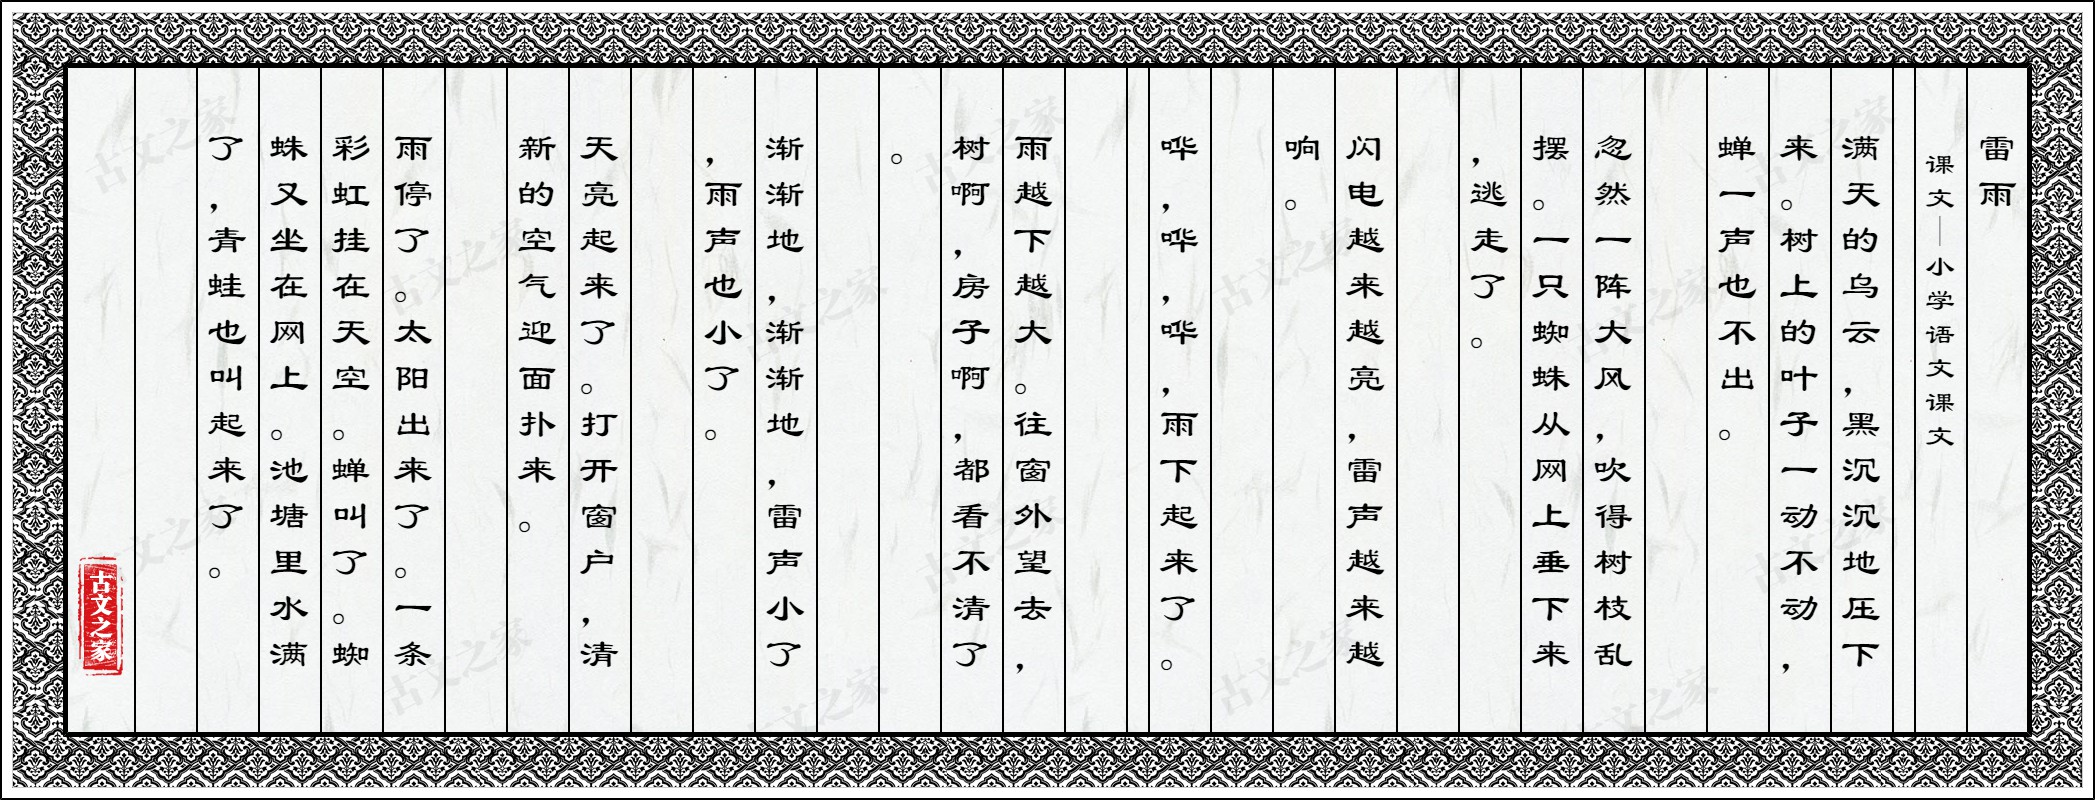 雷雨
课文—小学语文课文
满天的乌云，黑沉沉地压下
来。树上的叶子一动不动，
蝉一声也不出。
忽然一阵大风，吹得树枝乱
摆。一只蜘蛛从网上垂下来
，逃走了。
闪电越来越亮，雷声越来越
响。
哗，哗，哗，雨下起来了。
雨越下越大。往窗外望去，
树啊，房子啊，都看不清了
。
渐渐地，渐渐地，雷声小了
，雨声也小了。
天亮起来了。打开窗户，清
新的空气迎面扑来。
雨停了。太阳出来了。一条
彩虹挂在天空。蝉叫了。蜘
蛛又坐在网上。池塘里水满
了，青蛙也叫起来了。
古文之家